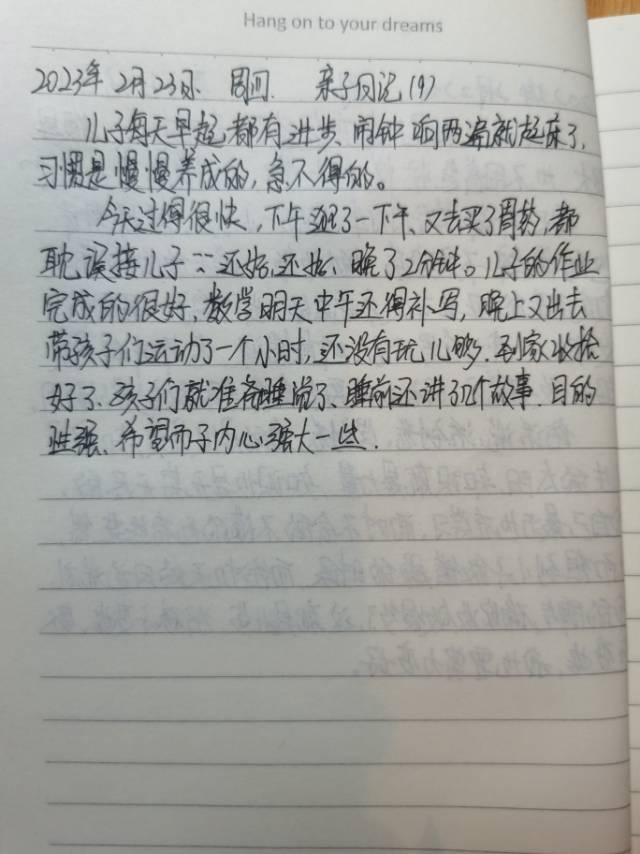 Hang on to your dreams
2023年2月23日. 周四. 亲子日记(9)
儿子每天早起都有进步、闹钟响两遍就起床了,
习惯是慢慢养成的,急不得的。
今天过得很快,下午逛了一下午、又去买了胃药,都
耽误接儿子::还好,还好、晚了2分钟。儿子的作业
完成的很好,数学明天中午还得补写,晚上又出去
带孩子们运动了一个小时,还没有玩儿够.到家收拾
好了、孩子们就准备睡觉了、睡前还讲了几个故事.目的
性强、希望而子内心强大一些.